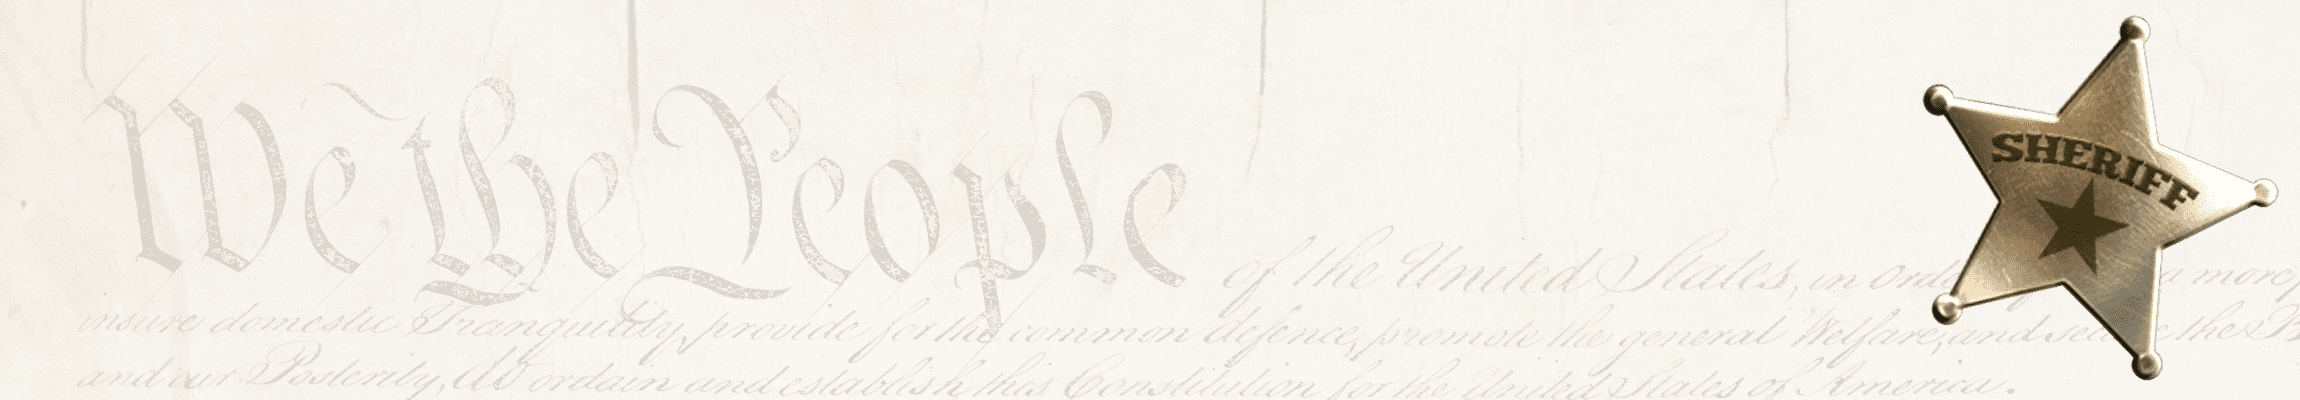 We the People of the United States, in Orde a more
insure domestic Tranquility, provide for the common defence, promote the general Welfare, and se e the B
and our Posterity, do ordain and establish this Constitution for the United States of America.
SHERIFF